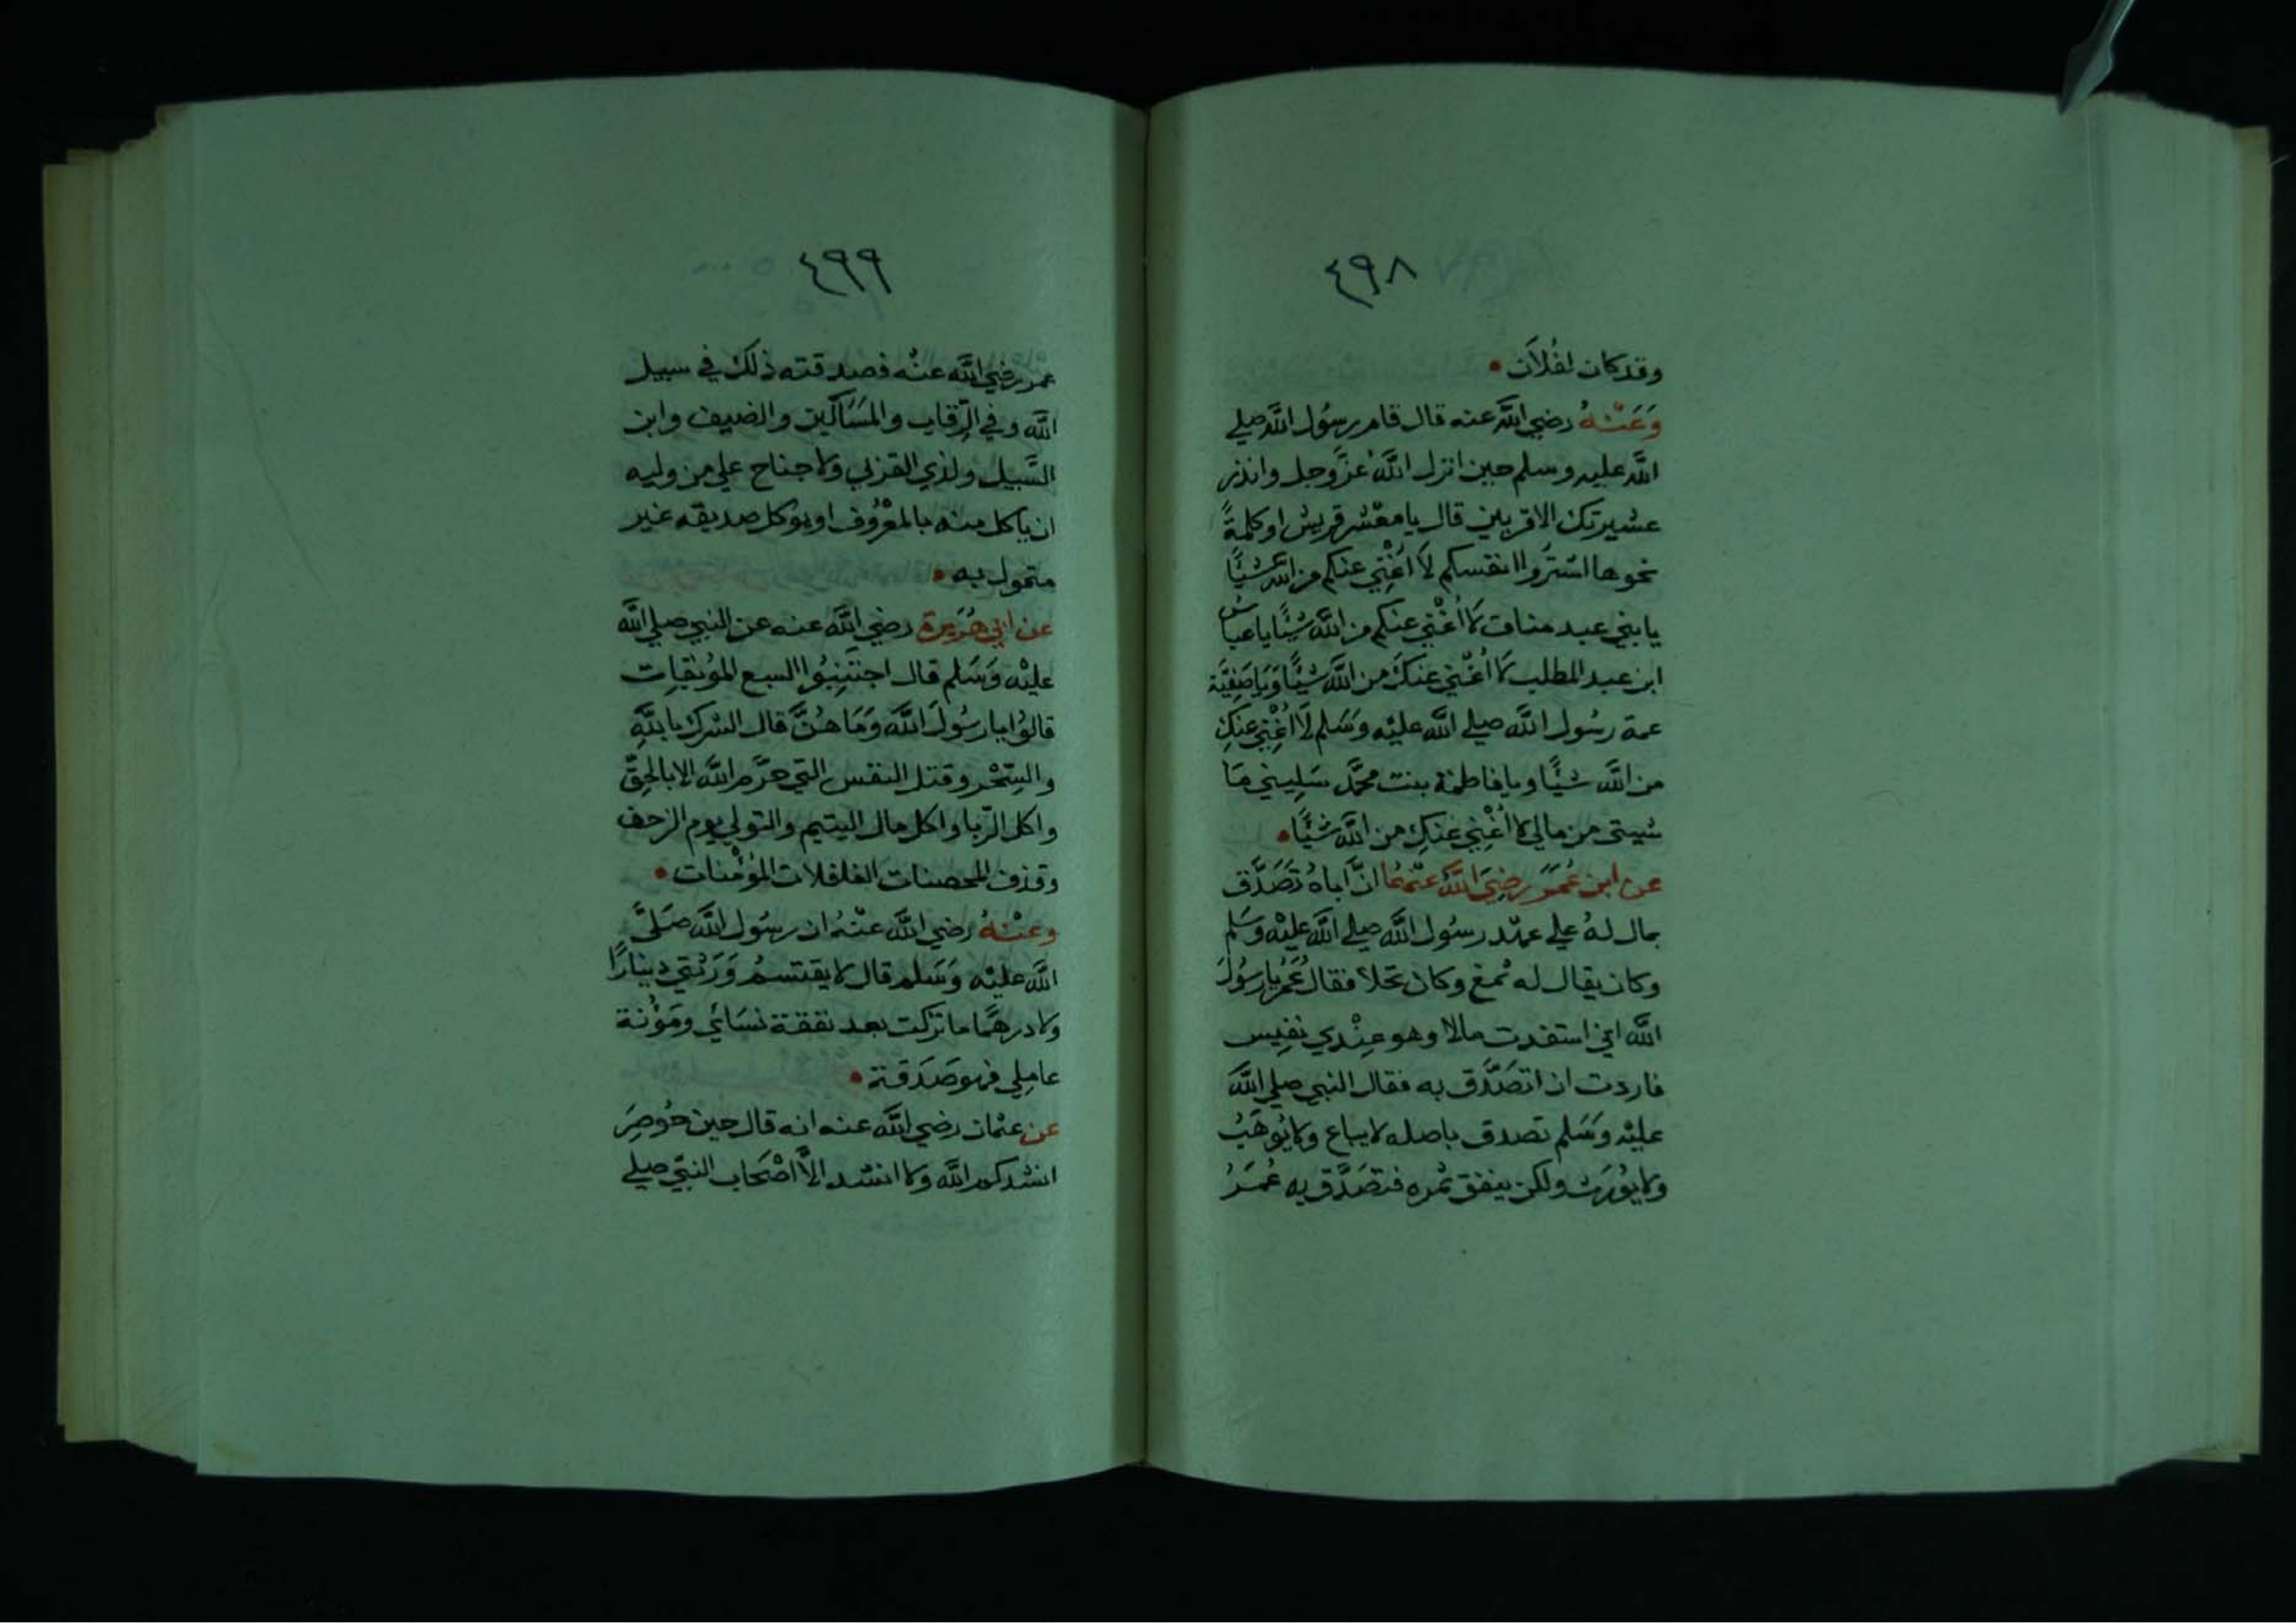 ٤٩٨
وقد كان لفُلَان •
وَعَنْهُ رضي الله عنه قال قام رسُول الله صلي
الله عليه وسلم حين انزل اللَّهُ عزَّوجل وانذر
عشيرتك الاقربين قال يا معْشر قريش او كلمةً
نحوها اشترُوا انفسكم لَا اُغْنِي عنكم من الله شيًا
يا بني عبد مناف لا اُغْني عنكم من الله شيًا يا عباسُ
ابن عبد المطلب لا اُغْني عنكَ من الله شيًا وَيَا صَفِيَّة
عمة رسُول الله صلي الله عليْه وسَلم لَا اُغْنِي عنكِ
من الله شيًا ويا فاطمة بنت محمَّد سَلِيني مَا
شيتى من مالي لا اُغْنِي عَنكِ من الله شيًا •
عن ابن عُمَرَ رضِيَ اللَّهُ عنْهُمَا انَّ اباهُ تَصَدَّق
بمال لهُ علي عهْد رسُول الله صلي الله عليْه وسَلم
وكان يقال له ثمغ وكان نخلا فقال عُمَرُ يا رسُولَ
الله اني استفدت مالا وهو عِنْدي نفِيس
فاردت ان اتصَدَّق به فقال النبي صلي الله
عليْه وسَلم تصدق باصله لا يباع ولا يُوهَبُ
ولا يُورَث ولكن ينفق ثمره فتصَدَّق به عُمَرُ
٤٩٩
عمر رضي الله عنْه فصدقته ذلك في سبيل
الله وفي الرِّقاب والمَسَاكين والضيف وابن
السَّبيل ولذي القربي ولا جناح علي من وليه
ان ياكل منه بالمعْرُوف او يوكل صديقه غير
متمول به •
عن ابي هُرَيرة رضي الله عنه عن النبي صلي الله
عليْه وَسَلم قال اجتنِبُوا السبع المُوبقِات
قالوُا يا رسُولَ الله وَمَا هُنَّ قال الشرك باللَّهِ
والسِّحْر وقتل النفس التي حرَّم الله الا بالحِقّ
واكل الرِّبا واكل مال اليتيم والتولي يوم الزحف
وقذف المحصنات الغافلات المُؤمنات •
وعَنْهُ رضي الله عنْهُ ان رسُول الله صَلَّي
الله عليْه وَسَلم قال لا يقتسمُ وَرَثتي دينارًا
ولا درهمًا ما تركت بعد نفقة نسَائي ومَؤُنة
عامِلي فهو صَدَقة •
عن عثمان رضي الله عنه انه قال حين حُوصِرَ
انشدكم الله ولا انشد الاَّ اصْحَاب النبيّ صلي